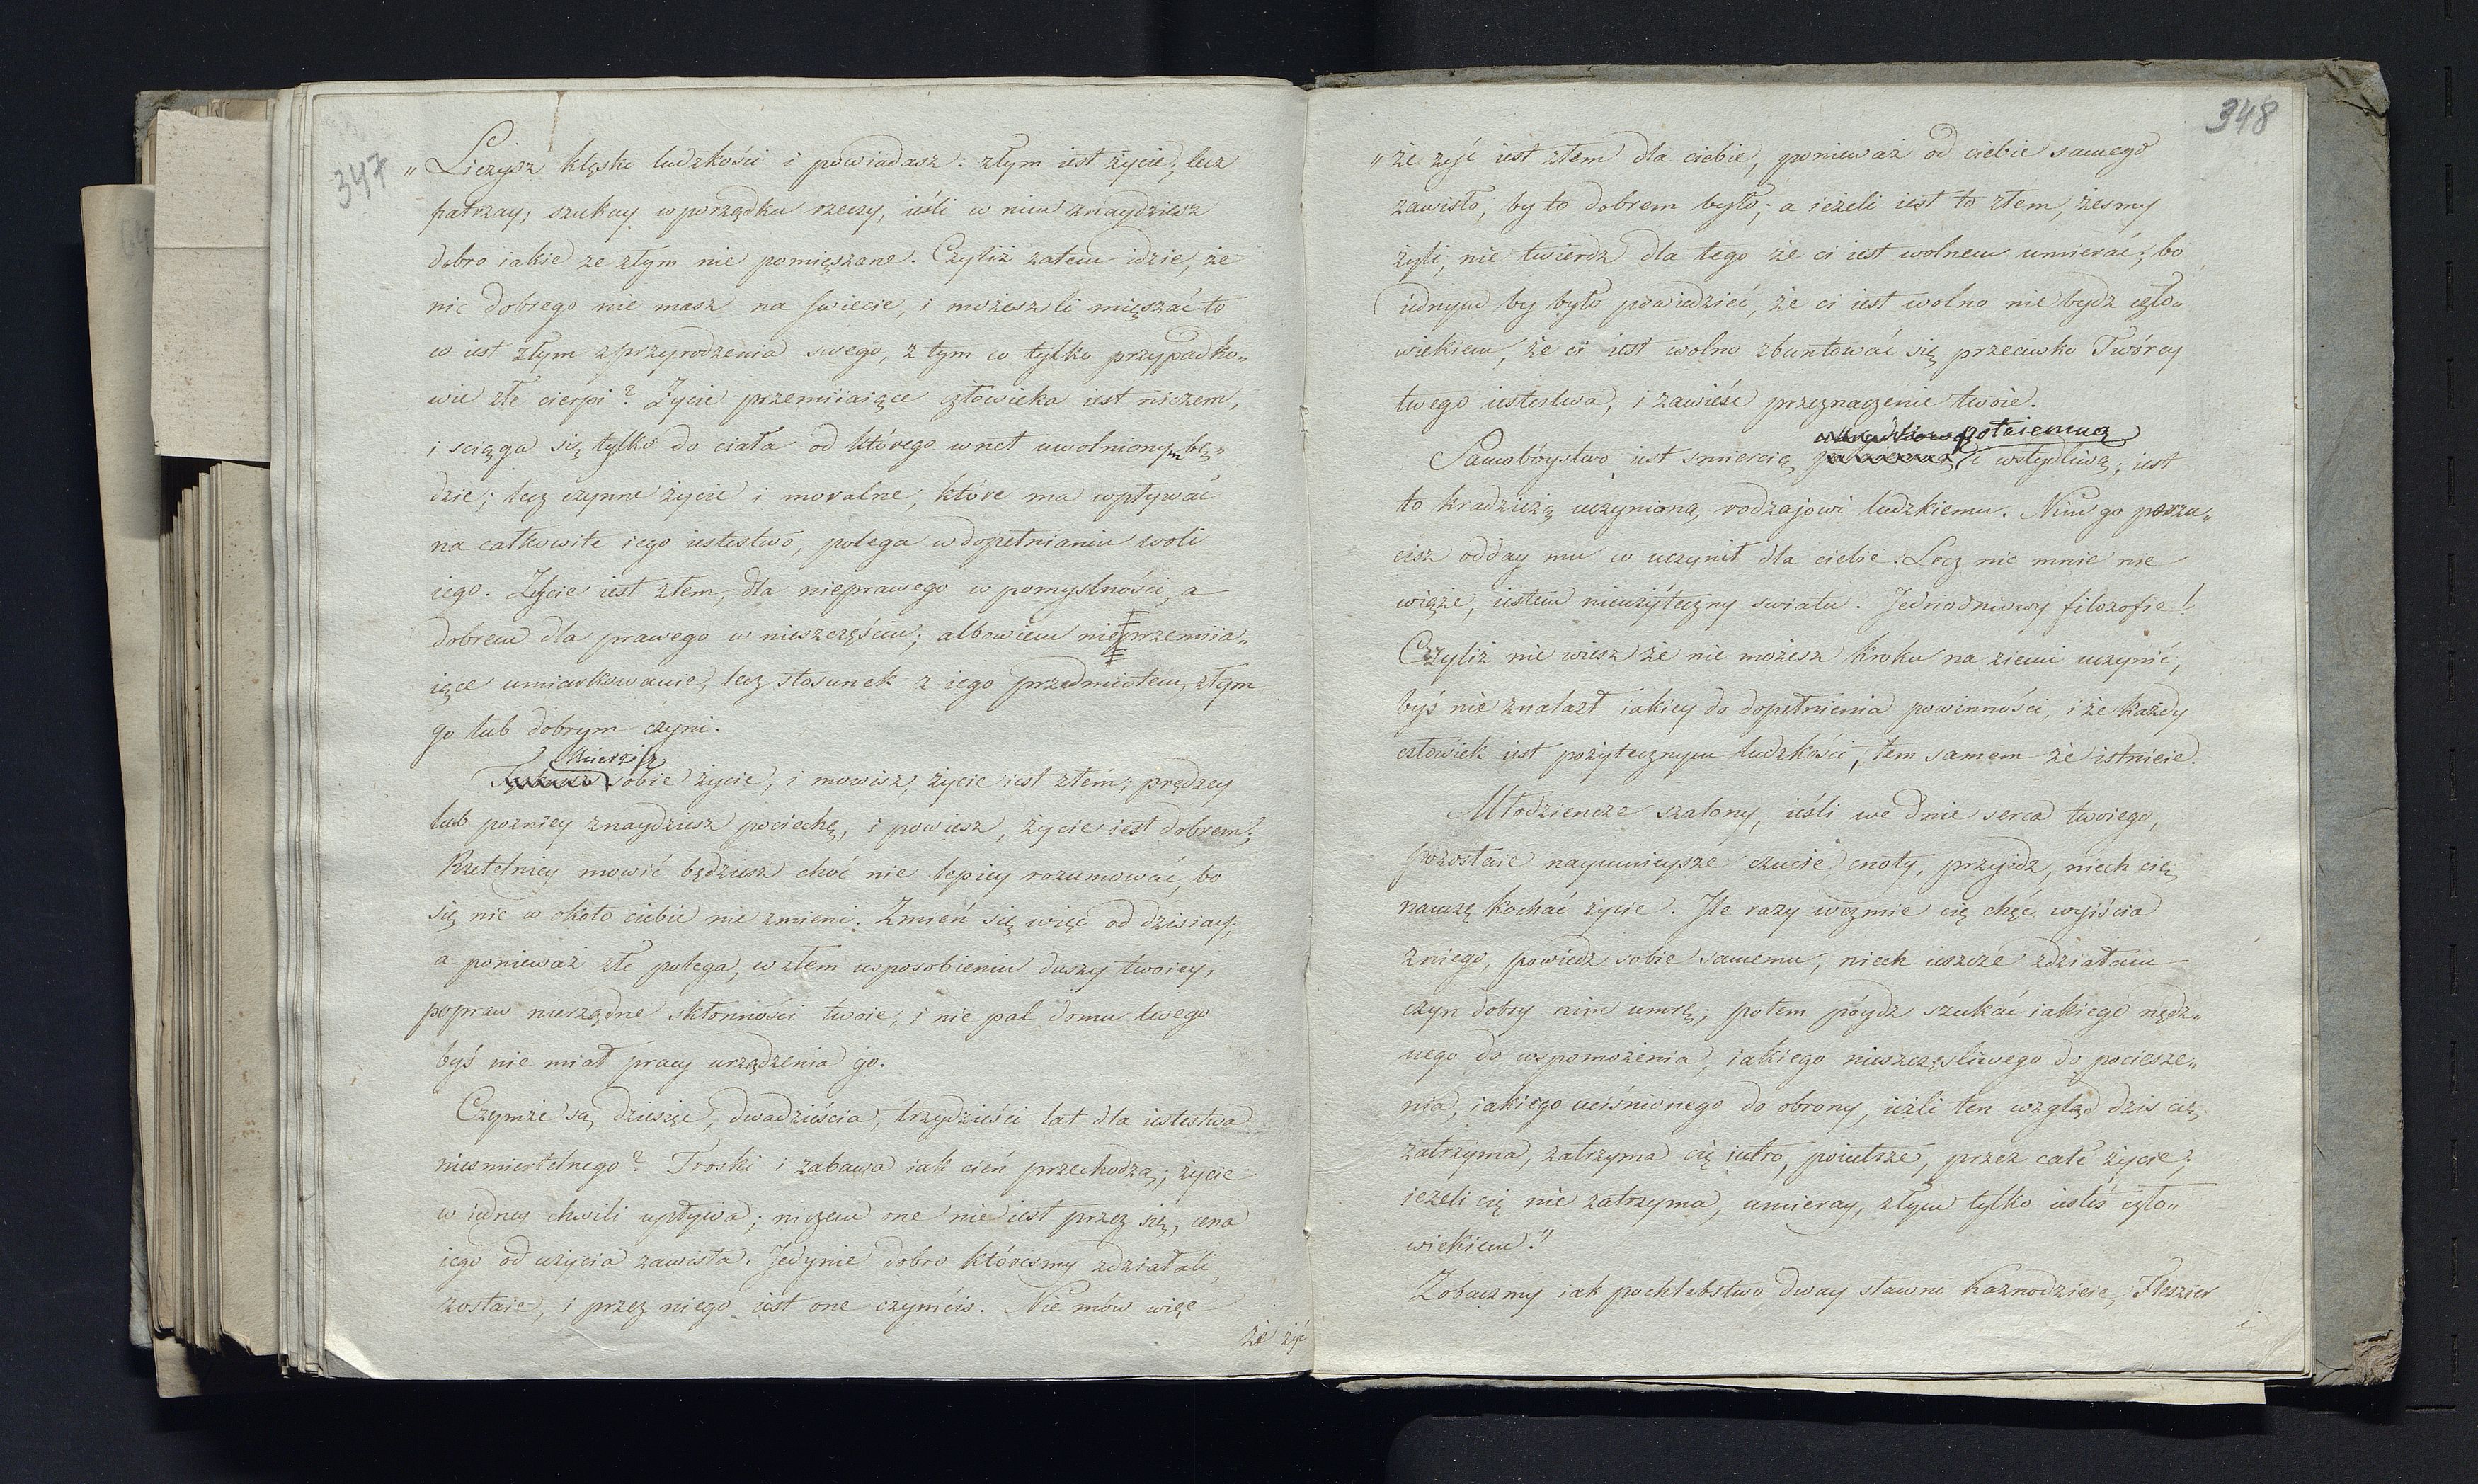 347
„ Liczysz klęski ludzkości i powiadasz: złym iest życie; lecz
patrzay; szukay w porządku rzeczy, iéśli w nim znaydziesz
dobro iakie ze złym nie pomięszane. Czyliż zatem idzie, że
nic dobrego nie masz na swiecie, i możeszli mięszać to
co iest złym z przyrodzenia swego, z tym co tylko przypadko„
wie złe cierpi? Życie przemiiaiące człowieka iest niczem,
i sciąga się tylko do ciała od którego wnet uwolnionym bę„
dzie; lecz czynne życie i moralne, które ma wpływać
na całkowite iego iestestwo, polega w dopełnianiu woli
iego. Życie iest złem, dla nieprawego w pomyslności, a
dobrem dla prawego w nieszczęściu; albowiem nie przemiia„
iące umiarkowanie, lecz stosunek z iego przedmiotem, złym
go lub dobrym czyni.
Mierzisz
sobie życie, i mowisz, życie iest złem; prędzey
lub pozniey znaydziesz pociechę, i powiesz, życie iest dobrem;
Rzetelniey mowić będziesz choć nie lepiey rozumować, bo
się nic w około ciebie nie zmieni. Zmień się więc od dzisiay;
a ponieważ złe polega, w złem usposobieniu duszy twoiey,
popraw nierządne skłonności twoie, i nie pal domu twego
byś nie miał pracy urządzenia go.
Czymże są dziesięc, dwadzieścia, trzydzieści lat dla iestestwa
niesmiertelnego? Troski i zabawa iak cień przechodzą; życie
w iedney chwili upływa; niczem one nie iest przez się; cena
iego od użycia zawisła. Jedynie dobro któresmy zdziałali,
zostaie, i przez niego iest one czymścis. Nie mów więc
że żyć
348
„ że żyć iest złem dla ciebie, ponieważ od ciebie samego
zawisło, by to dobrem było; a ieżeli iest to złem, żesmy
żyli, nie twierdz dla tego że ci iest wolnem umierać; bo
iednym by było powiedzieć, że ci iest wolno nie bydz czło„
wiekiem, że ci iest wolno zbuntować się przeciwko Twórcy
twego iestestwa, i zawieść przeznaczenie twoie.
potaiemną
Samobóystwo iest smiercią i wstydliwą; iest
to kradzieżą uczynioną rodzajowi ludzkiemu. Nim go porzu„
cisz odday mu co uczynił dla ciebie. Lecz nic mnie nie
wiąże, iestem nieużyteczny swiatu. Jednodniowy filozofie!
Czyliż nie wiesz że nie możesz kroku na ziemi uczynić,
byś nie znalazł iakiey do dopełnienia powinności, i że każdy
człowiek iest pożytecznym ludzkości, tem samem że istnieie.
Młodziencze szalony, ieśli we dnie serca twoiego,
pozostaie naymnieysze czucie cnoty, przyidz, niech cię
nauczę kochać życie. Ile razy weźmie cię chęć wyiścia
z niego, powiedz sobie samemu, niech ieszcze zdziałam
czyn dobry nim umrę; potem póydz szukać iakiego nędz„
nego do wspomożenia, iakiego nieszczęsliwego do pociesze„
nia, iakiego uciśnionego do obrony, ieżli ten wzgląd dzis cię
zatrzyma, zatrzyma cię iutro, poiutrze, przez całe życie;
ieżeli cię nie zatrzyma, umieray, złym tylko iesteś czło„
wiekiem."
Zobaczmy iak pochlebstwo dway sławni kaznodzieie, Fleszier
i